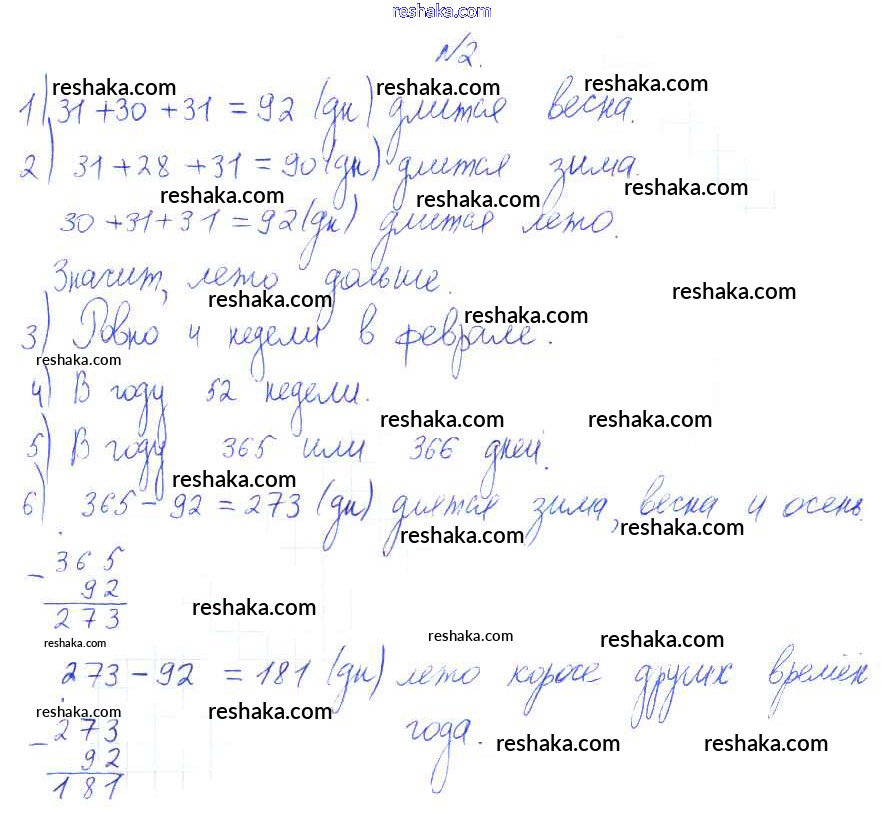 reshaka.com
№2.
1) 31+30+31=92 (дн) длится весна.
reshaka.com reshaka.com reshaka.com
2) 31+28+31=90 (дн) длится зима.
reshaka.com reshaka.com reshaka.com
30+31+31=92 (дн) длится лето.
Значит, лето дольше.
reshaka.com reshaka.com
3) Ровно 4 недели в феврале.
reshaka.com reshaka.com
4) В году 52 недели.
reshaka.com reshaka.com
5) В году 365 или 366 дней.
reshaka.com
6) 365-92=273 (дн) длятся зима, весна и осень.
reshaka.com reshaka.com
- 365
92
273
reshaka.com
reshaka.com reshaka.com reshaka.com
273-92=181 (дн) лето короче других времён
года.
reshaka.com reshaka.com
- 273
92
181
reshaka.com reshaka.com